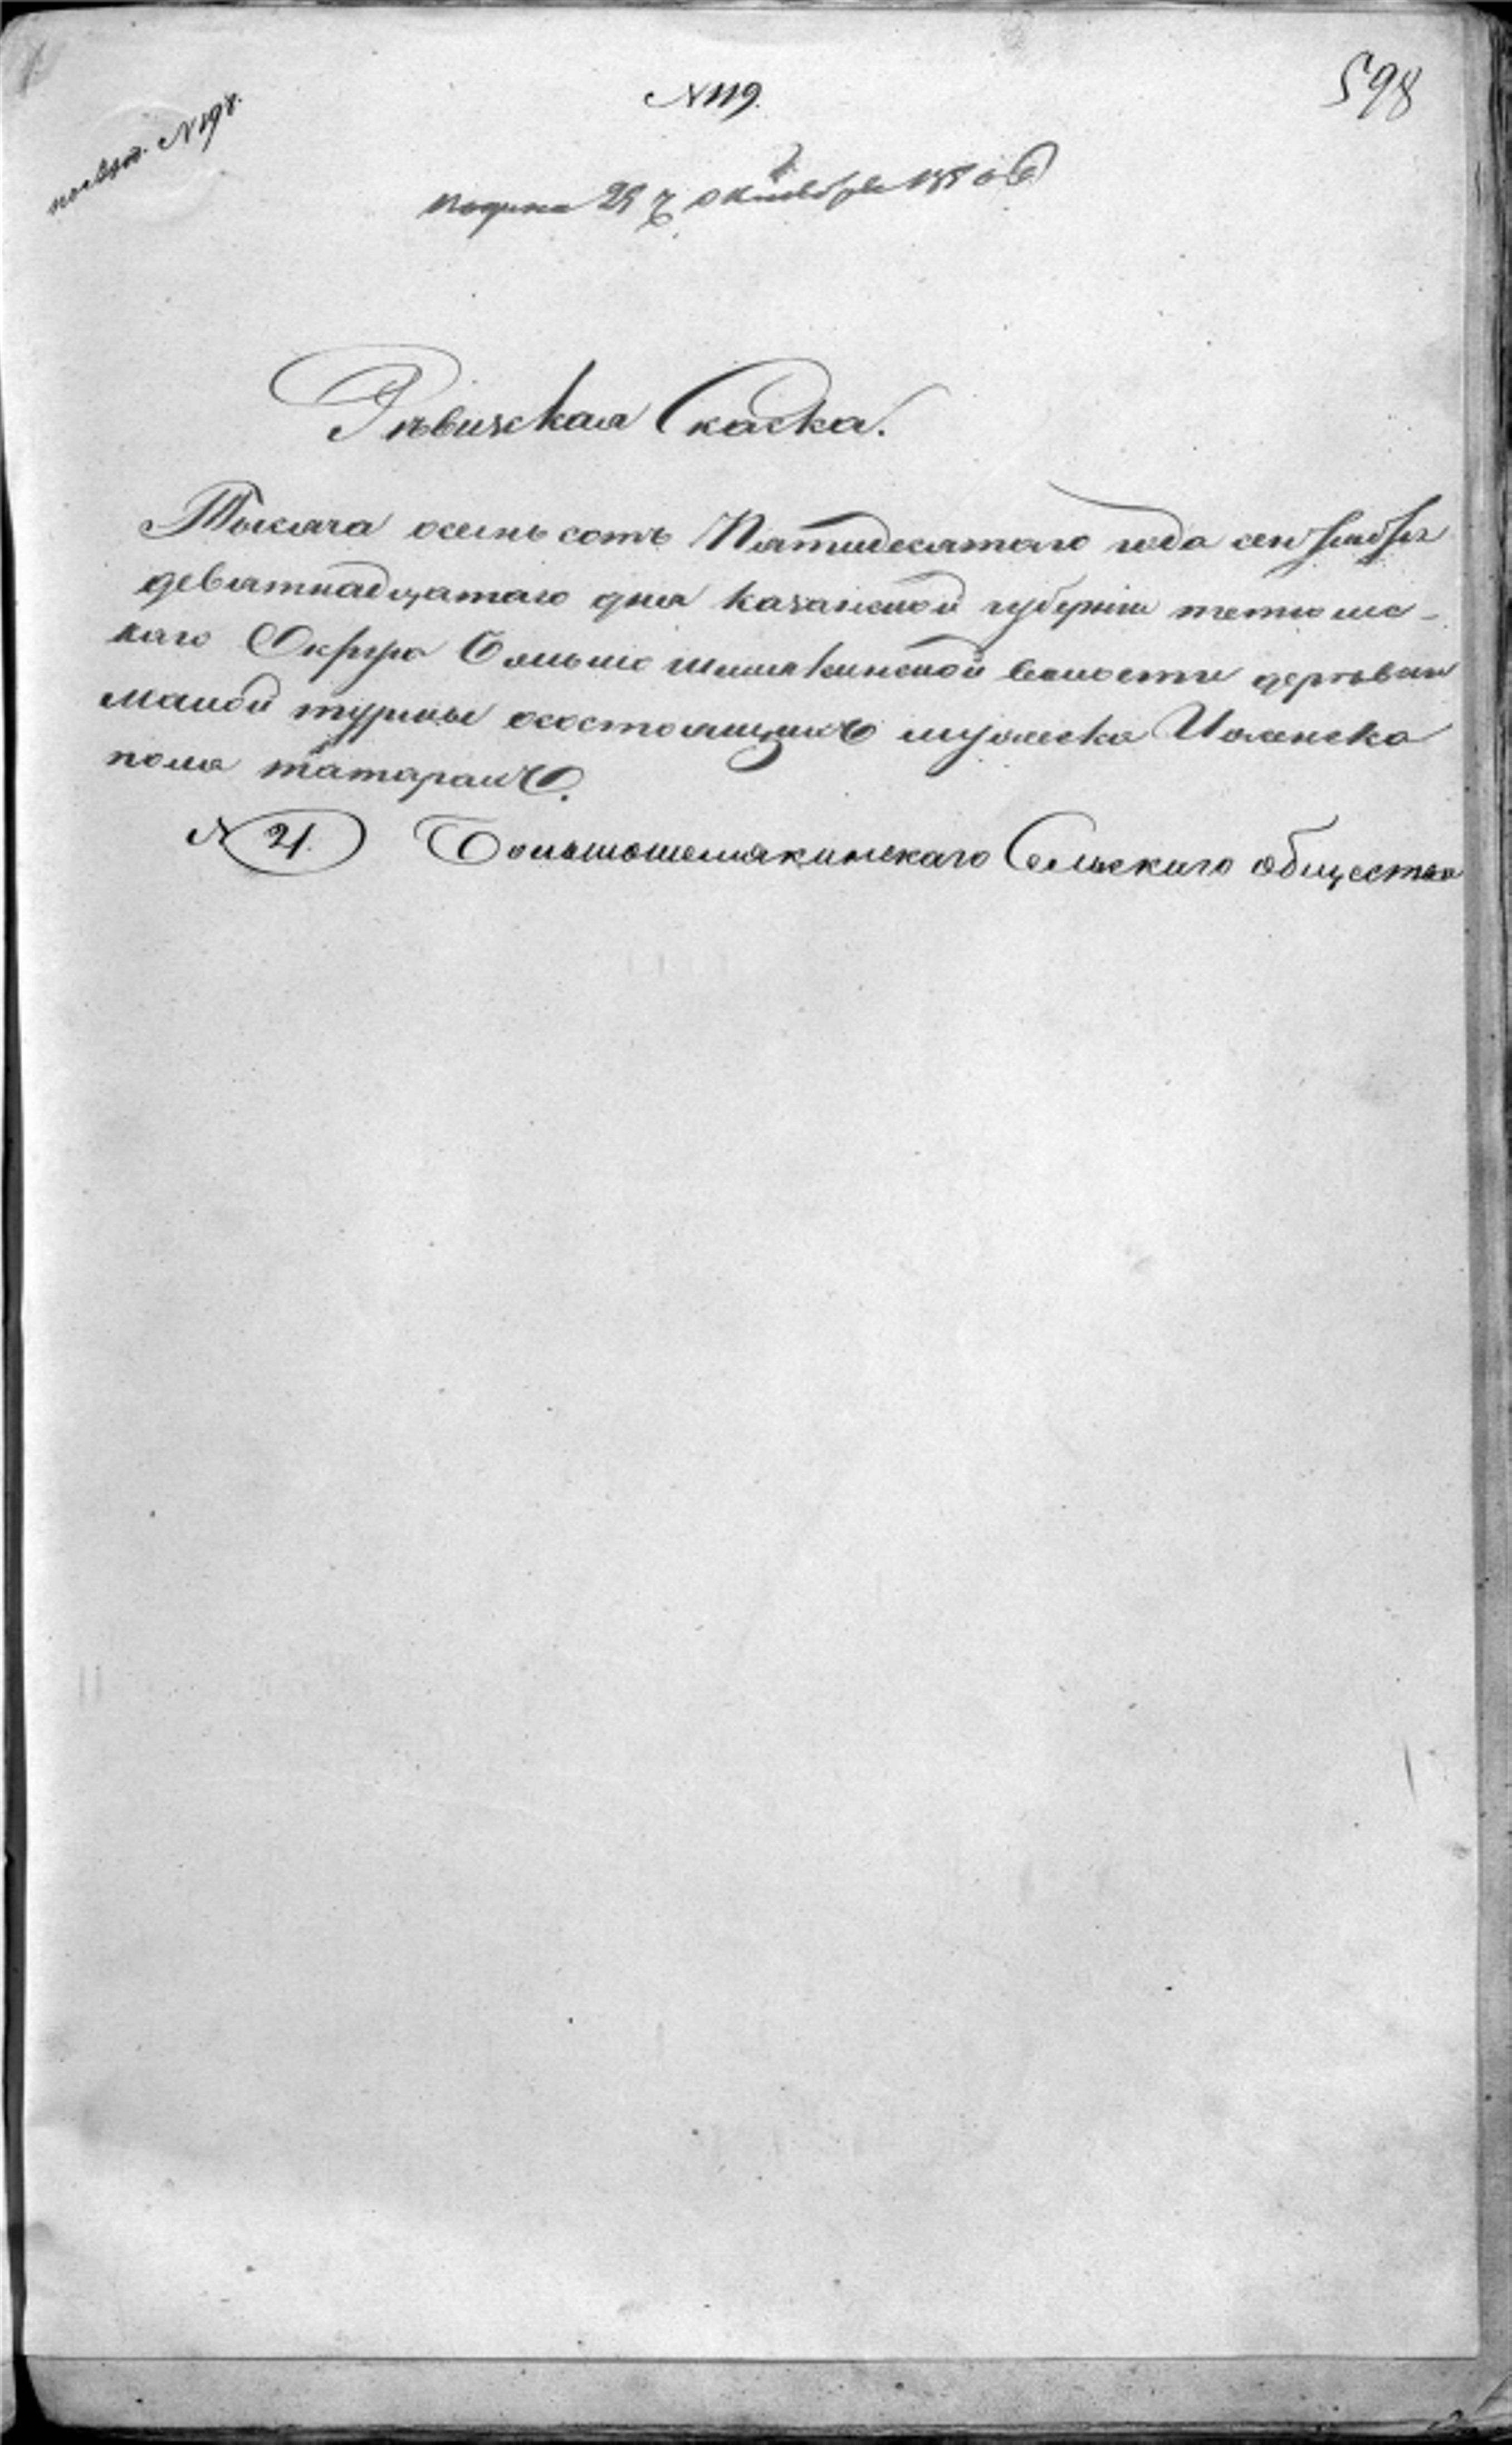 598
N 119.
по вѣд. N 198.
подана 29 ч октября 1850 год
Рѣвижская Скаска.
Тысяча осемь сотъ Пятидесятаго года сентября
девятнадцатаго дня казанской губерніи тетюшс-
каго Округа больше шемякинской волости деревни
малой турмы осостоящихъ мужеска Иженска
пола татарахъ.
N 21. Большошемякинскаго Сельскаго общества